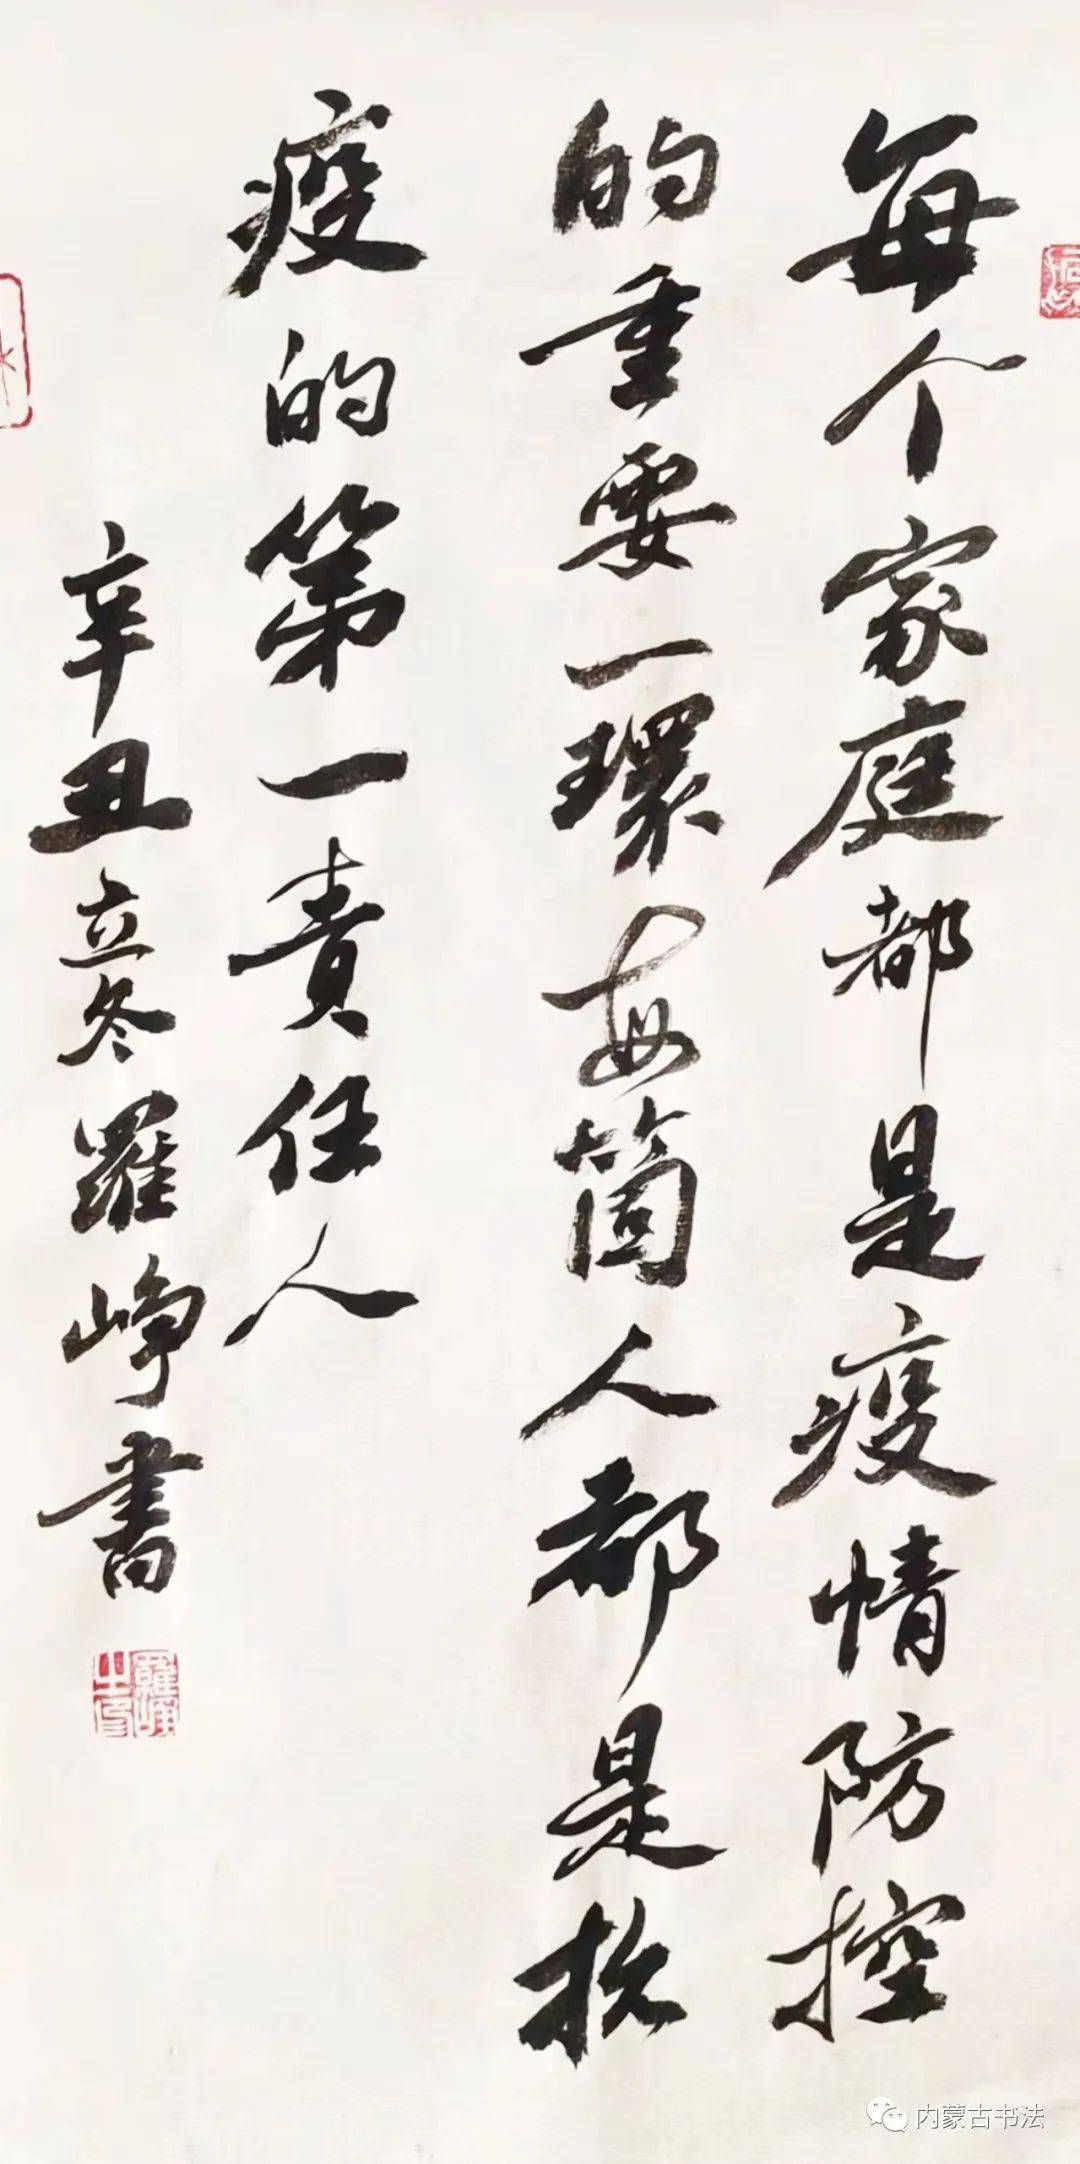 每个家庭都是疫情防控
的重要一環每箇人都是抗
疫的第一責任人
辛丑立冬羅峥書
羅峥之印
内蒙古书法